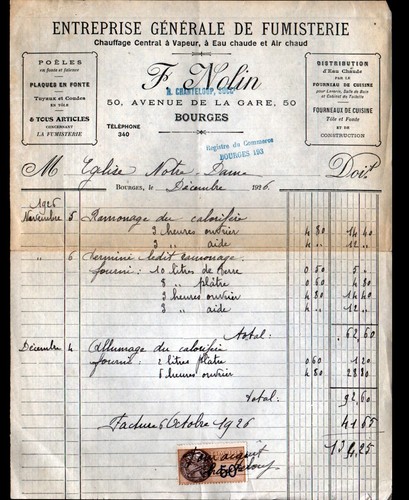 ENTREPRISE GÉNÉRALE DE FUMISTERIE
Chauffage Central à Vapeur, à Eau chaude et Air chaud
POÊLES
en fonte et faïence
PLAQUES EN FONTE
Tuyaux et Coudes
EN TÔLE
& TOUS ARTICLES
CONCERNANT
LA FUMISTERIE
F. Nolin
R. CHANTELOUP, SUCC
50, AVENUE DE LA GARE, 50
BOURGES
TÉLÉPHONE
340
DISTRIBUTION
d'Eau Chaude
PAR LE
FOURNEAU DE CUISINE
pour Lavabo, Salle de Bain
et Cabinet de Toilette
FOURNEAUX DE CUISINE
Tôle et Fonte
ET DE
CONSTRUCTION
Registre du Commerce
BOURGES 193
M Eglise Notre-Dame Doit
Bourges, le Décembre 1926.
1926
Novembre 5 Ramonage du calorifère
3 heures ouvrier 4 80 14 40
3 " aide 4 " 12 "
" 6 Terminé ledit ramonage.
fourni : 10 litres de terre 0 50 5 "
8 " plâtre 0 60 4 80
3 heures ouvrier 4 80 14 40
3 " aide 4 " 12 "
Total : 62,60
Décembre 4 Allumage du calorifère
fourni : 2 litres plâtre 0 60 1 20
6 heures ouvrier 4 80 28 80
Total : 92,60
Facture 6 Octobre 1926 41 65
134,25
Pour acquit
Chanteloup
50